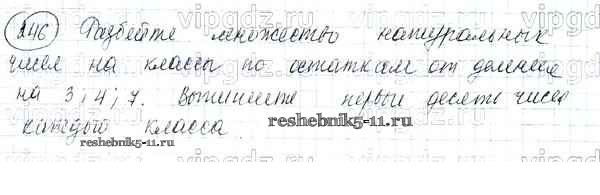 246 Разбейте множество натуральных
чисел на классы по остаткам от деления
на 3; 4; 7. Выпишите первые десять чисел
каждого класса.
reshebnik5-11.ru
reshebnik5-11.ru
vipgdz.ru
vipgdz.ru
vipgdz.ru